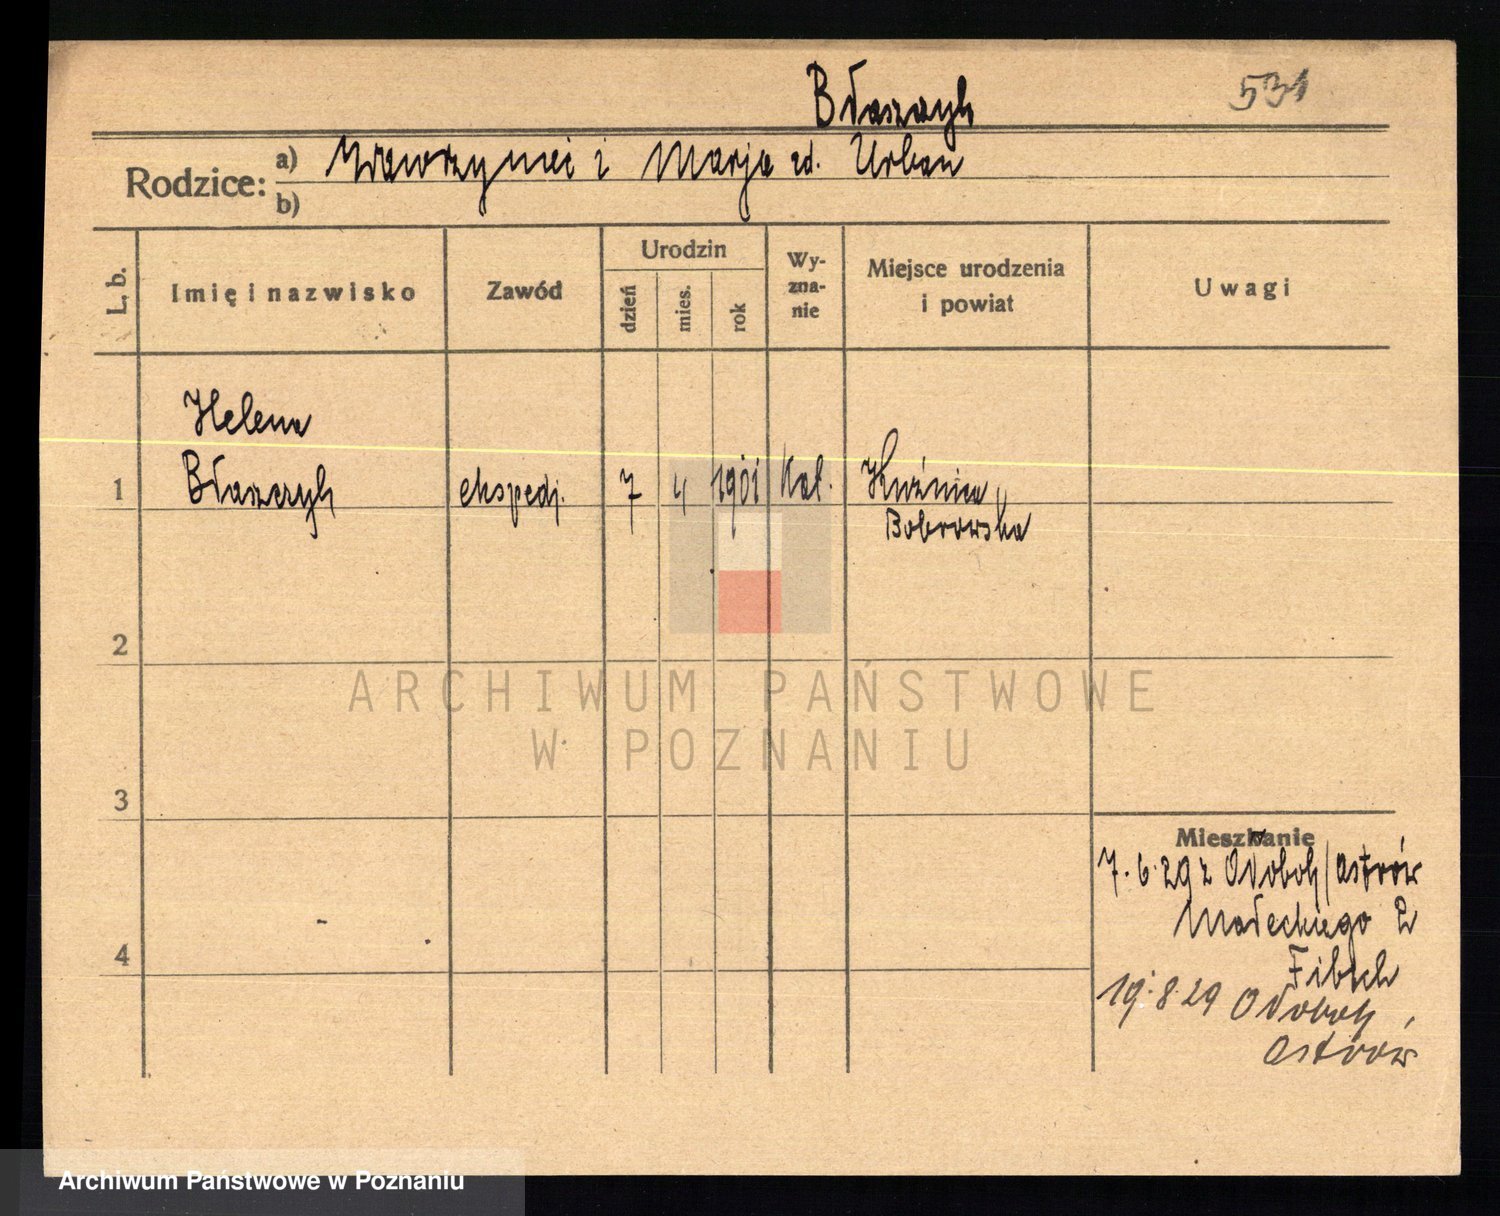 Błaszczyk
531
Rodzice:
a) Wawrzyniec i Marja zd. Urban
b)
L. b.
Imię i nazwisko
Zawód
Urodzin
dzień
mies.
rok
Wy-
zna-
nie
Miejsce urodzenia
i powiat
Uwagi
Helena
1 Błaszczyk ekspedj. 7 4 1901 Kat. Kuźnica
Bobrowska
2
3
4
Mieszkanie
7.6.29 z Odolo / Ostrów
Małeckiego
19.8.29
Ostrów
ARCHIWUM PAŃSTWOWE
W POZNANIU
Archiwum Państwowe w Poznaniu